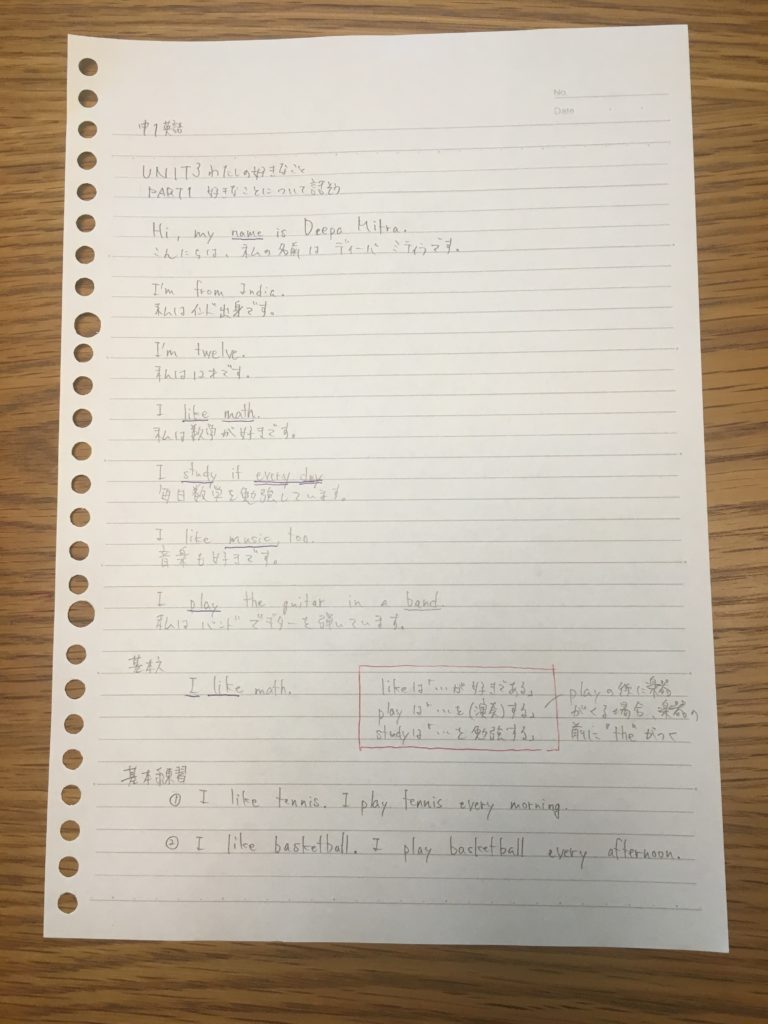 No.
Date
中1 英語
UNIT3 わたしの好きなこと
PART1 好きなことについて話そう
Hi, my name is Deepa Mitra.
こんにちは、私の名前は ディーパ ミティラです。
I'm from India.
私はインド出身です。
I'm twelve.
私は12才です。
I like math.
私は数学が好きです。
I study it every day
毎日数学を勉強しています。
I like music, too.
音楽も好きです。
I play the guitar in a band.
私は バンドでギターを弾しています。
基本文
I like math.
likeは「…が好きである」
playは「…を(演奏)する」
studyは「…を勉強する」
playの後に楽器
がくる場合、楽器の
前に"the"がつく
基本練習
① I like tennis. I play tennis every morning.
② I like basketball. I play backetball every afternoon.